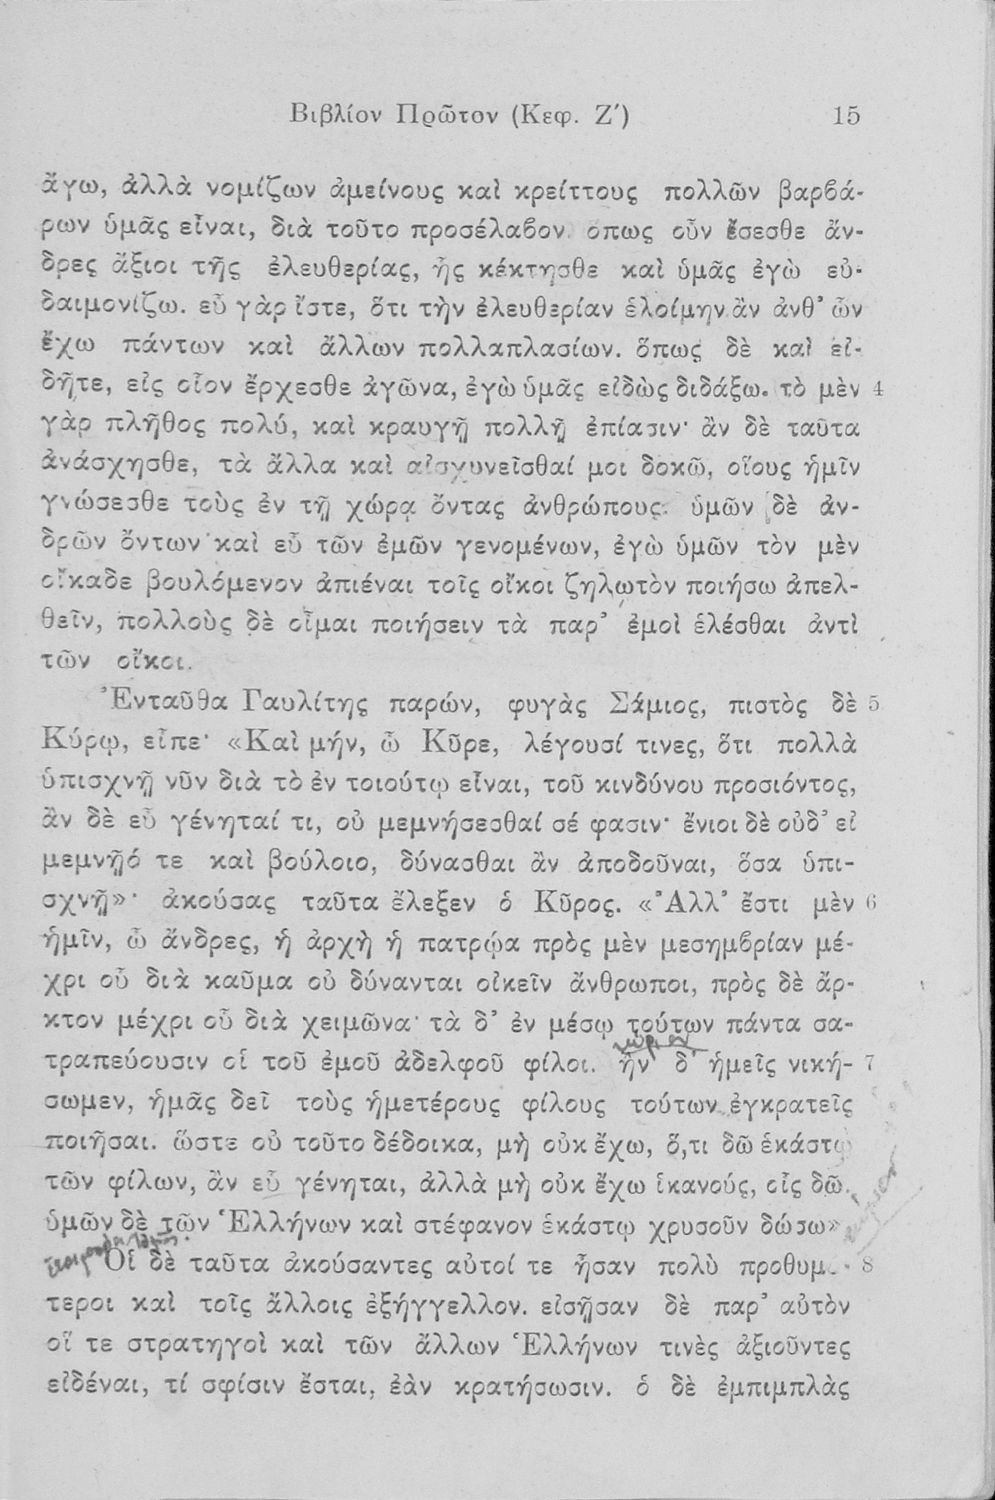 Βιβλίον Πρῶτον (Κεφ. Ζ΄) 15
ἄγω, ἀλλὰ νομίζων ἀμείνους καὶ κρείττους πολλῶν βαρβά-
ρων ὑμᾶς εἶναι, διὰ τοῦτο προσέλαβον. ὅπως οὖν ἔσεσθε ἄν-
δρες ἄξιοι τῆς ἐλευθερίας, ἧς κέκτησθε καὶ ὑμᾶς ἐγὼ εὐ-
δαιμονίζω. εὖ γὰρ ἴστε, ὅτι τὴν ἐλευθερίαν ἑλοίμην ἂν ἀνθ’ ὧν
ἔχω πάντων καὶ ἄλλων πολλαπλασίων. ὅπως δὲ καὶ εἰ-
δῆτε, εἰς οἷον ἔρχεσθε ἀγῶνα, ἐγὼ ὑμᾶς εἰδὼς διδάξω. τὸ μὲν 4
γὰρ πλῆθος πολύ, καὶ κραυγῇ πολλῇ ἐπίασιν· ἂν δὲ ταῦτα
ἀνάσχησθε, τὰ ἄλλα καὶ αἰσχυνεῖσθαί μοι δοκῶ, οἵους ἡμῖν
γνώσεσθε τοὺς ἐν τῇ χώρᾳ ὄντας ἀνθρώπους. ὑμῶν δὲ ἀν-
δρῶν ὄντων καὶ εὖ τῶν ἐμῶν γενομένων, ἐγὼ ὑμῶν τὸν μὲν
οἴκαδε βουλόμενον ἀπιέναι τοῖς οἴκοι ζηλωτὸν ποιήσω ἀπελ-
θεῖν, πολλοὺς δὲ οἶμαι ποιήσειν τὰ παρ’ ἐμοὶ ἑλέσθαι ἀντὶ
τῶν οἴκοι.
Ἐνταῦθα Γαυλίτης παρών, φυγὰς Σάμιος, πιστὸς δὲ 5
Κύρῳ, εἶπε· «Καὶ μήν, ὦ Κῦρε, λέγουσί τινες, ὅτι πολλὰ
ὑπισχνῇ νῦν διὰ τὸ ἐν τοιούτῳ εἶναι, τοῦ κινδύνου προσιόντος,
ἂν δὲ εὖ γένηταί τι, οὐ μεμνήσεσθαί σέ φασιν· ἔνιοι δὲ οὐδ’ εἰ
μεμνῇό τε καὶ βούλοιο, δύνασθαι ἂν ἀποδοῦναι, ὅσα ὑπι-
σχνῇ»· ἀκούσας ταῦτα ἔλεξεν ὁ Κῦρος. «Ἀλλ’ ἔστι μὲν 6
ἡμῖν, ὦ ἄνδρες, ἡ ἀρχὴ ἡ πατρῴα πρὸς μὲν μεσημβρίαν μέ-
χρι οὗ διὰ καῦμα οὐ δύνανται οἰκεῖν ἄνθρωποι, πρὸς δὲ ἄρ-
κτον μέχρι οὗ διὰ χειμῶνα· τὰ δ’ ἐν μέσῳ τούτων πάντα σα-
τραπεύουσιν οἱ τοῦ ἐμοῦ ἀδελφοῦ φίλοι. ἢν δ’ ἡμεῖς νική- 7
σωμεν, ἡμᾶς δεῖ τοὺς ἡμετέρους φίλους τούτων ἐγκρατεῖς
ποιῆσαι. ὥστε οὐ τοῦτο δέδοικα, μὴ οὐκ ἔχω, ὅ,τι δῶ ἑκάστῳ
τῶν φίλων, ἂν εὖ γένηται, ἀλλὰ μὴ οὐκ ἔχω ἱκανούς, οἷς δῶ.
ὑμῶν δὲ τῶν Ἑλλήνων καὶ στέφανον ἑκάστῳ χρυσοῦν δώσω»
Οἱ δὲ ταῦτα ἀκούσαντες αὐτοί τε ἦσαν πολὺ προθυμ.- 8
τεροι καὶ τοῖς ἄλλοις ἐξήγγελλον. εἰσῇσαν δὲ παρ’ αὐτὸν
οἵ τε στρατηγοὶ καὶ τῶν ἄλλων Ἑλλήνων τινὲς ἀξιοῦντες
εἰδέναι, τί σφίσιν ἔσται, ἐὰν κρατήσωσιν. ὁ δὲ ἐμπιμπλὰς